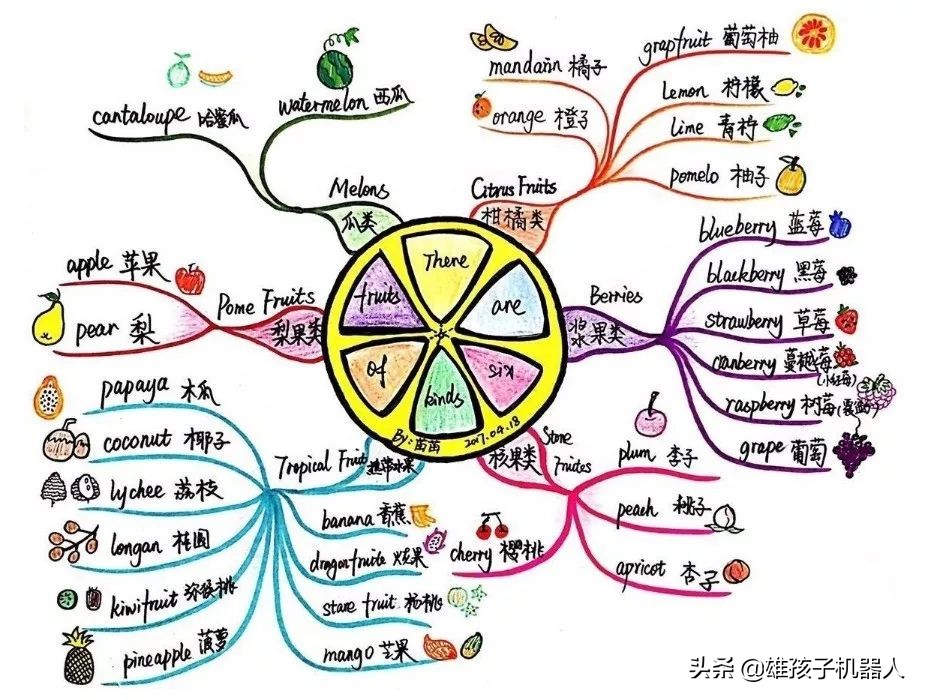 There
are
six
kinds
of
fruits
By:苗苗 2017.04.18
Melons
瓜类
cantaloupe 哈蜜瓜
watermelon 西瓜
Citrus Fruits
柑橘类
mandarin 橘子
orange 橙子
grapfruit 葡萄柚
Lemon 柠檬
lime 青柠
pomelo 柚子
Berries
浆果类
blueberry 蓝莓
blackberry 黑莓
strawberry 草莓
canberry 蔓越莓
(小红莓)
raspberry 树莓
grape 葡萄
Stone
Fruites
核果类
plum 李子
peach 桃子
apricot 杏子
cherry 樱桃
Tropical Fruit
热带水果
papaya 木瓜
coconut 椰子
lychee 荔枝
longan 桂圆
kiwifruit 猕猴桃
pineapple 菠萝
banana 香蕉
dragonfruite 火龙果
stare fruit 杨桃
mango 芒果
Pome Fruits
梨果类
apple 苹果
pear 梨
头条 @雄孩子机器人